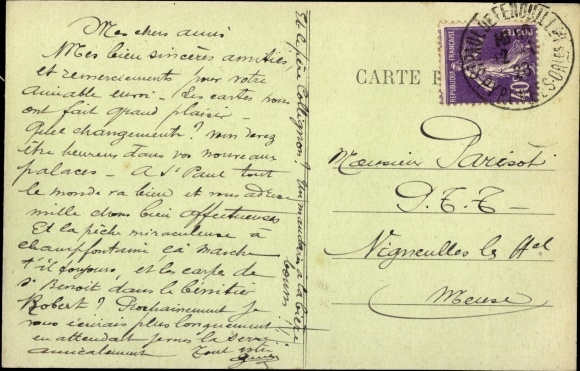 Mes chers amis
Mes bien sincères amitiés,
et remerciements pour votre
aimable envoi - Les cartes nous
ont fait grand plaisir -
Quel changement ? vous devez
être heureux dans vos nouveaux
palaces - A St Paul tout
le monde va bien et vous adresse
mille choses bien affectueuses
Et la pêche miraculeuse à
Champfontaine, ça marche
t'il toujours, et les carpes de
St Benoit dans le bénitier
Robert ? Prochainement je
vous écrirais plus longuement
en attendant je vous la serre
amicalement Tout
Et à feu Collignon ?
CARTE
ST PAUL DE FENOUILLET
PYRÉNÉES-ORIES
REPUBLIQUE FRANÇAISE
POSTES
40c
Monsieur Parisot
P.T.T -
Vigneulles les Htel
Meuse